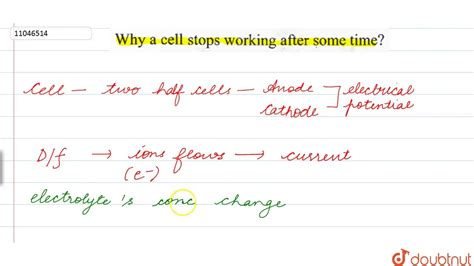 11046514
Why a cell stops working after some time?
Cell — two half cells — Anode
Cathode
electrical
potential
D/f → ions flows → current
(e-)
electrolyte's conc change
doubtnut